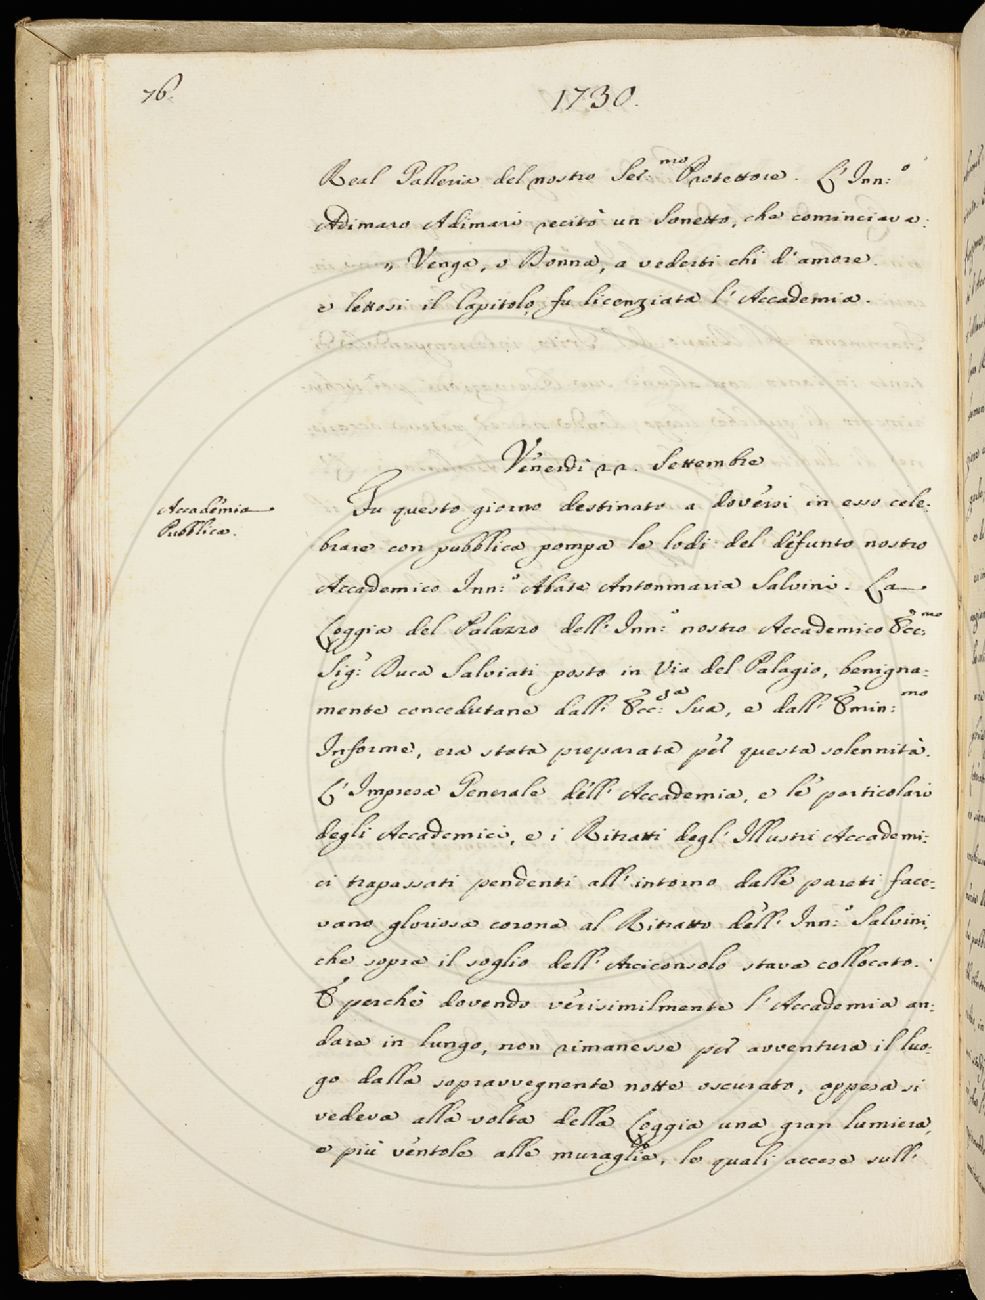 76.
1730.
Real Galleria del nostro Ser:mo Protettore. L'Inn:o
Adimaro Adimari recitò un Sonetto, che cominciava:
„ Venga, o Donna, a vederti chi d'amore.
e lettosi il Capitolo, fu licenziata l'Accademia.
Venerdì 22. Settembre
Accademia
Pubblica.
Fu questo giorno destinato a doversi in esso cele-
brare con pubblica pompa le lodi del defunto nostro
Accademico Inn:o Abate Antonmaria Salvini. La
Loggia del Palazzo dell'Inn:o nostro Accademico Ecc:mo
Sig: Duca Salviati posto in Via del Palagio, benigna-
mente concedutane dall'Ecc:a Sua, e dall'Emin:mo
Informe, era stata preparata per questa solennità.
L'Impresa Generale dell'Accademia, e le particolari
degli Accademici, e i Ritratti degl'Illustri Accademi-
ci trapassati pendenti all'intorno dalle pareti face-
vano gloriosa corona al Ritratto dell'Inn:o Salvini,
che sopra il soglio dell'Arciconsolo stava collocato.
E perchè dovendo verisimilmente l'Accademia an-
dare in lungo, non rimanesse per avventura il luo-
go dalla sopravvegnente notte oscurato, appesa si
vedeva alla volta della Loggia una gran lumiera,
e più ventole alle muraglie, le quali accese sull'